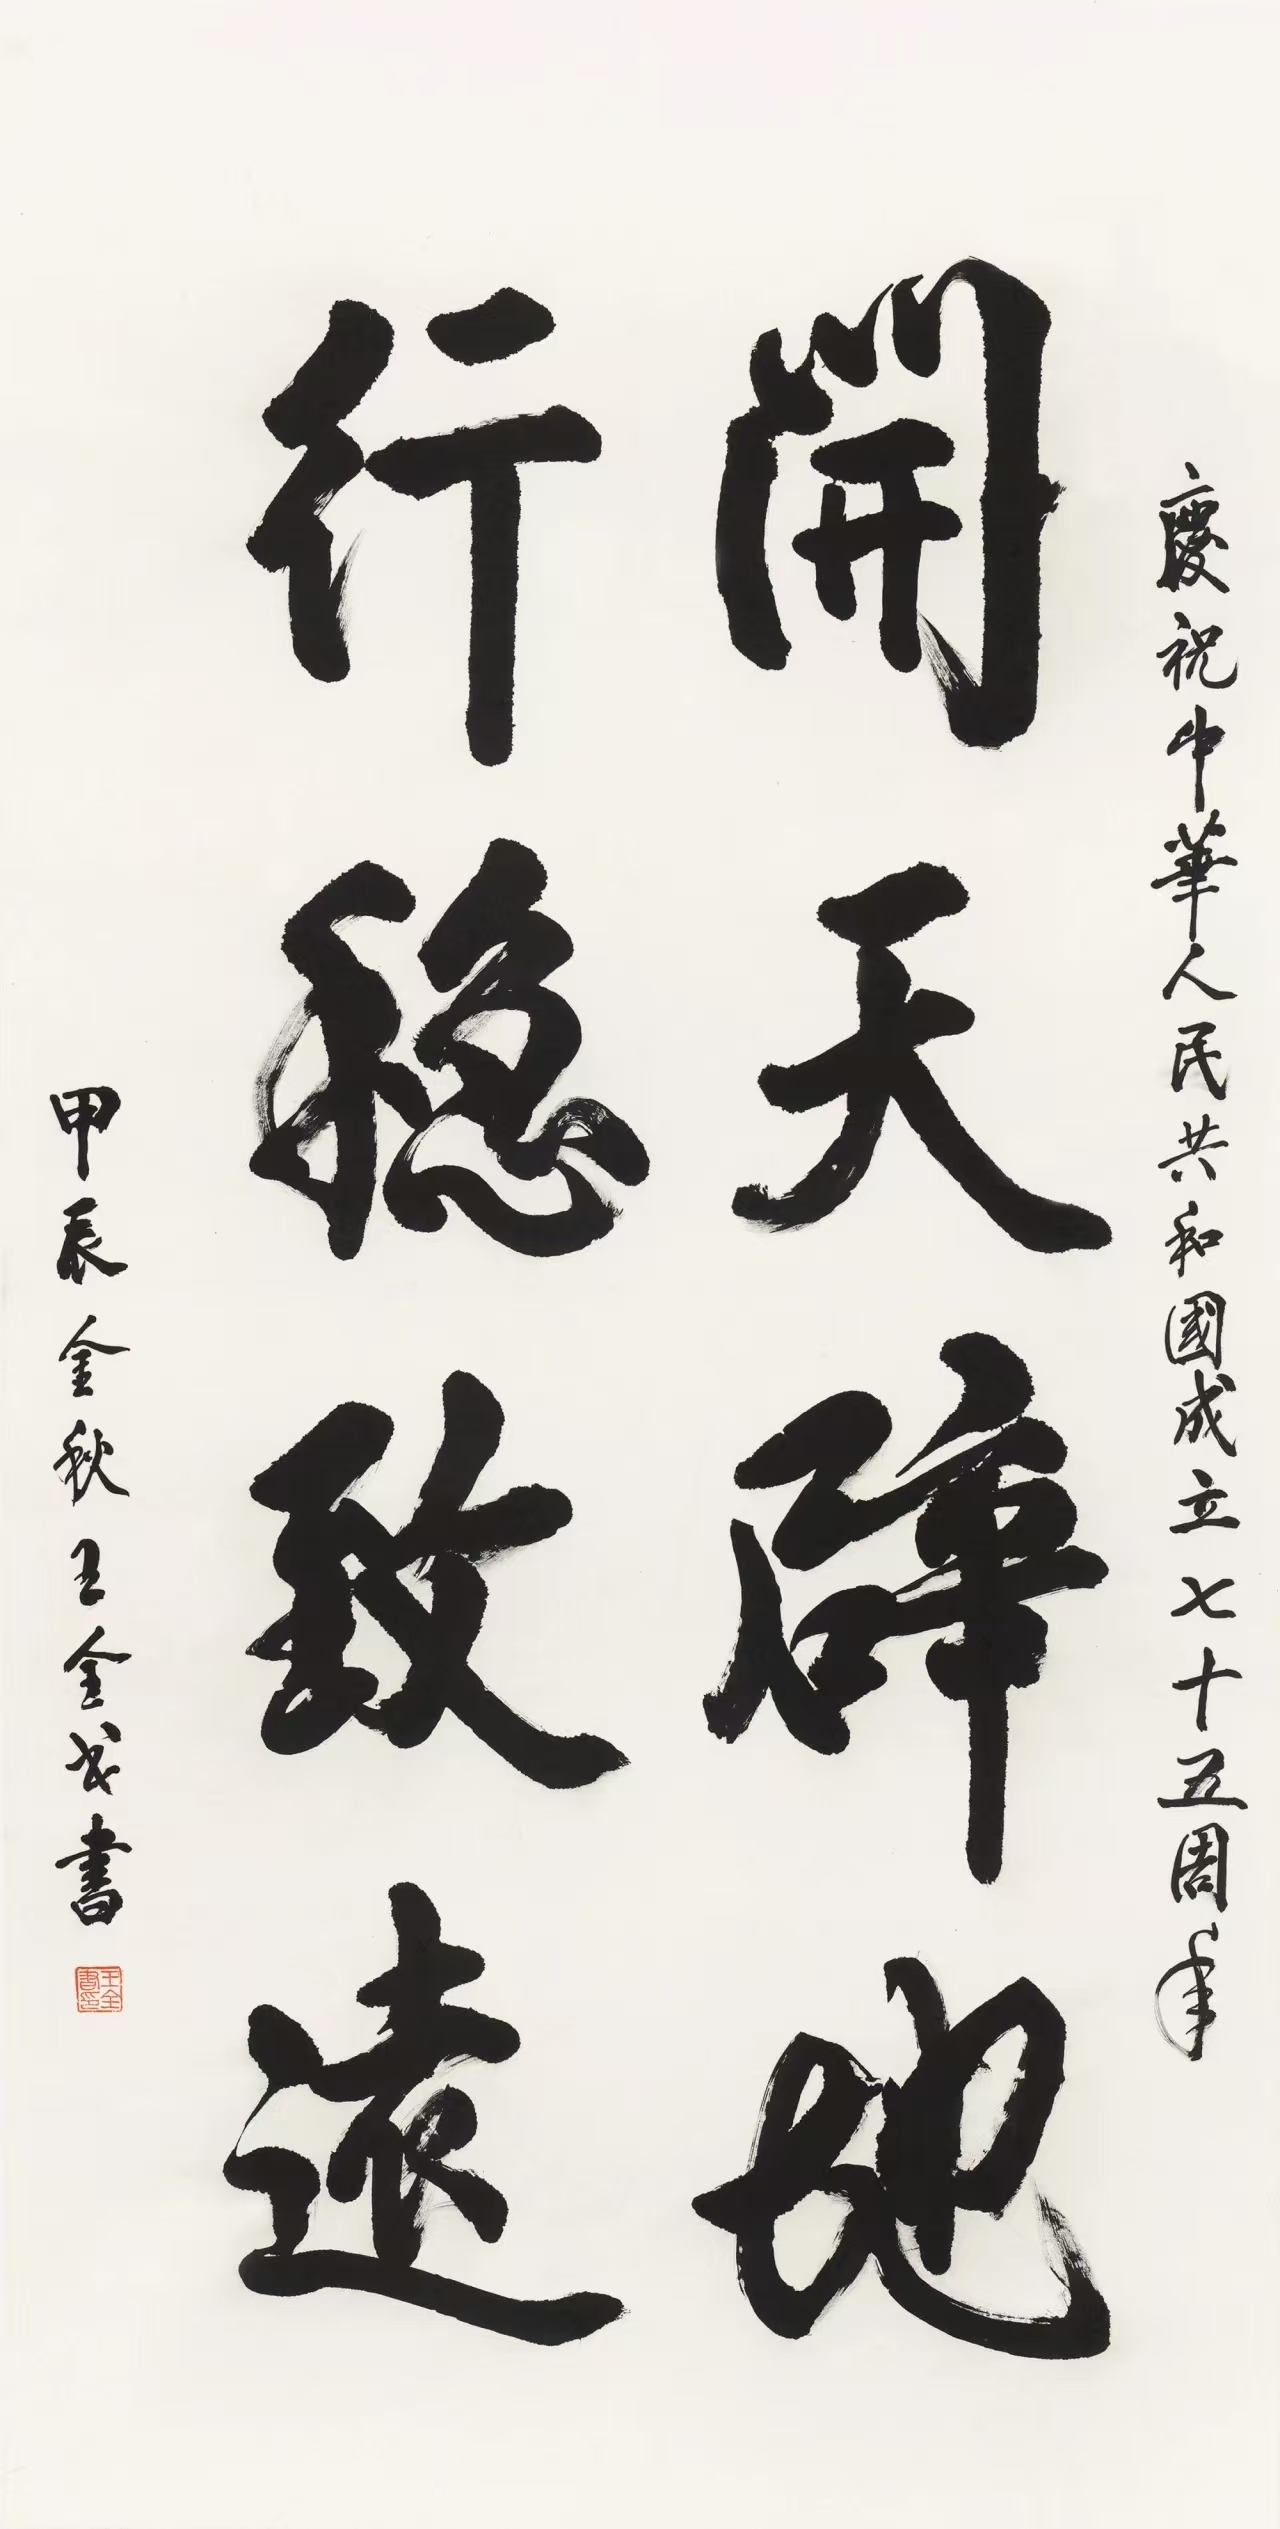 慶祝中華人民共和國成立七十五周年
開天辟地
行稳致遠
甲辰金秋王書